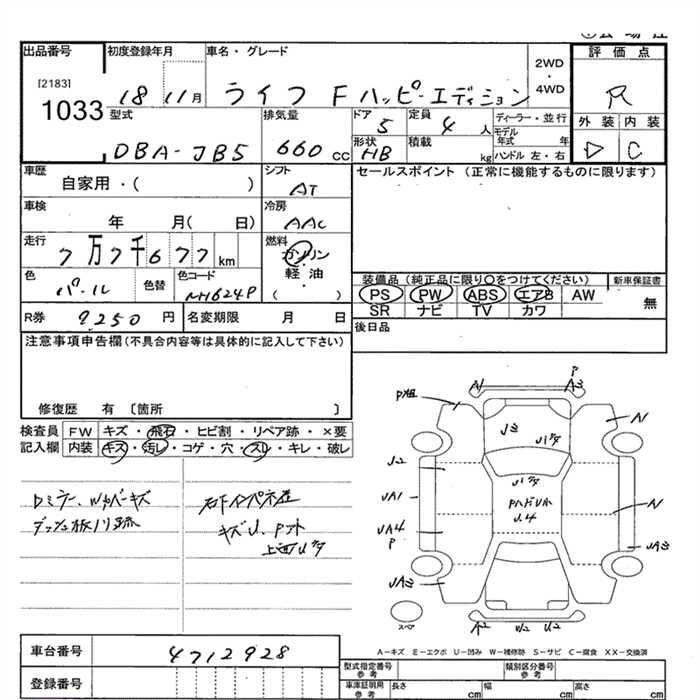 出品番号
初度登録年月
車名・グレード
2WD
・
4WD
評価点
[2183]
1033
18 11月
ライフ F ハッピーエディション
R
型式
排気量
ドア
定員
ディーラー・並行
外装
内装
DBA-JB5
660 CC
5
4 人
モデル
年式
年
形状
積載
HB
kg
ハンドル 左・右
D
C
車歴
シフト
セールスポイント (正常に機能するものに限ります)
自家用・( )
AT
車検
冷房
年 月( 日)
AAC
走行
燃料
7万7千677 km
ガソリン
・
軽油
( )
色
色替
色コード
パール
NH624P
装備品(純正品に限り○をつけてください)
新車保証書
PS PW ABS エアB AW
無
SR ナビ TV カワ
R券
9,250 円
名変期限 月 日
後日品
注意事項申告欄(不具合内容等は具体的に記入して下さい)
修復歴 有 〔箇所 〕
検査員
記入欄
FW キズ・飛石・ヒビ割・リペア跡・×要
内装 キズ・汚レ・コゲ・穴・スレ・キレ・破レ
Dミラー、Wipバーキズ
キズU、Pット
P
A3
J3
J2
JA1
JA4
P
JA3
U4
N
N
JA3
スペア
A2
W2
U2
A-キズ E-エクボ U-凹み W-補修跡 S-サビ C-腐食 XX-交換済
車台番号
4712928
登録番号
型式指定番号
参考
類別区分番号
参考
車庫証明用
参考
長さ cm
幅 cm
高さ cm